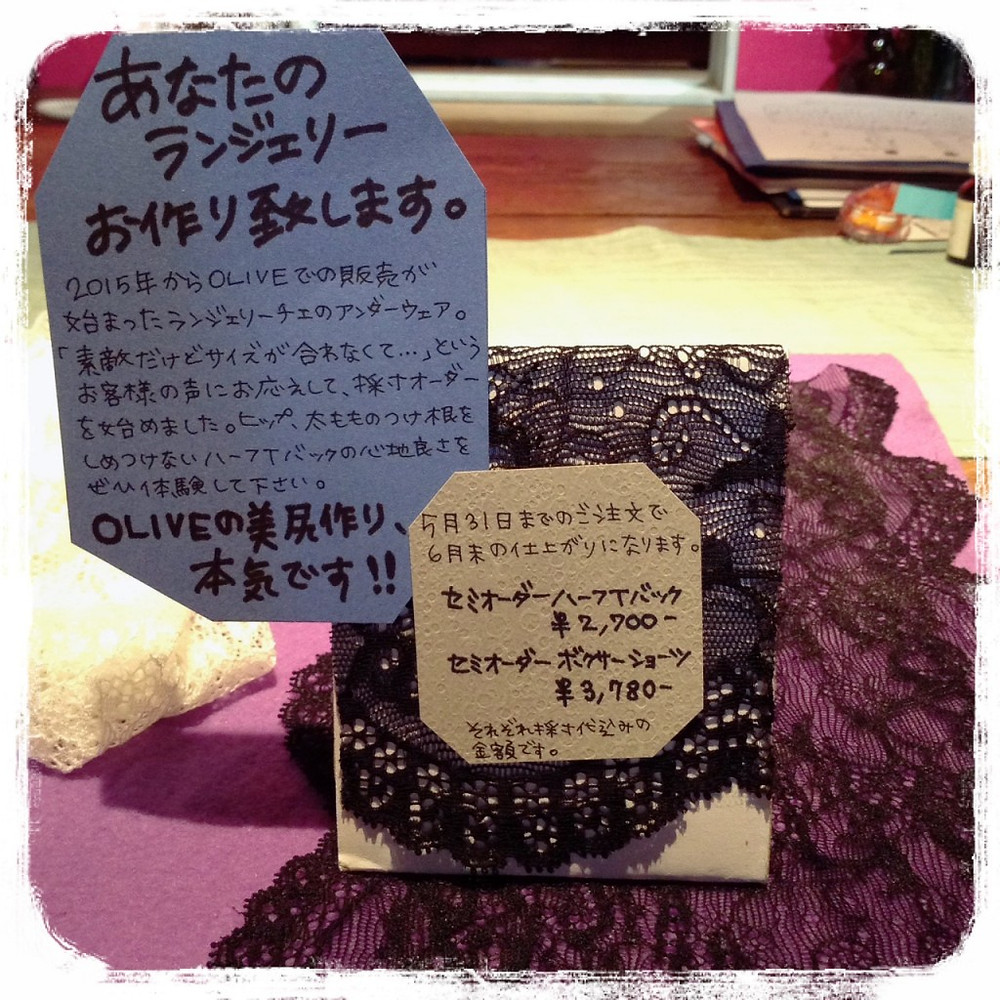 あなたの
ランジェリー
お作り致します。
2015年からOLIVEでの販売が
始まったランジェリーチエのアンダーウェア。
「素敵だけどサイズが合わなくて…」という
お客様の声にお応えして、採寸オーダー
を始めました。ヒップ、太もものつけ根を
しめつけないハーフTバックの心地良さを
ぜひ体験して下さい。
OLIVEの美尻作り、
本気です!!
5月31日までのご注文で
6月末の仕上がりになります。
セミオーダーハーフTバック
¥2,700-
セミオーダーボクサーショーツ
¥3,780-
それぞれ採寸代込みの
金額です。